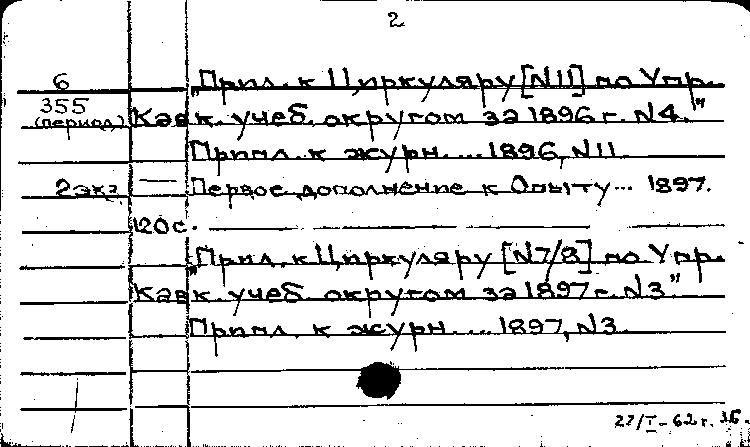 2
6 „Прил. к Циркуляру [N11] по Упр.
355
(период) Кавк. учеб. округом за 1896 г. N4."
Прилл. к журн. ... 1896, N11
2 экз — Первое дополнение к Опыту... 1897.
120 с.
„Прил. к Циркуляру [N7/8] по Упр.
Кавк. учеб. округом за 1897 г. N3"
Прилл. к журн. ... 1897, N3.
27/I-62 г.